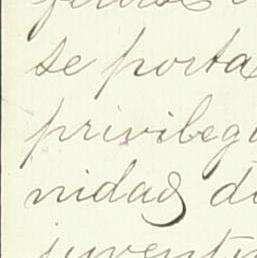 se porta
privileg
nidad d
juvent